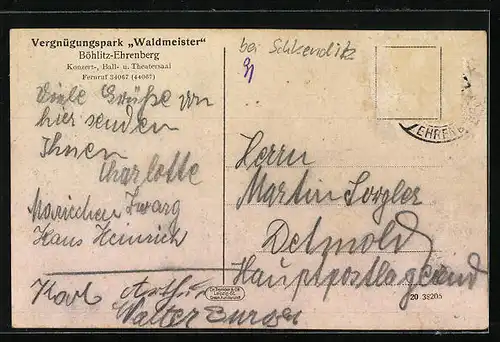 Vergnügungspark „Waldmeister“
Böhlitz-Ehrenberg
Konzert-, Ball- u. Theatersaal
Fernruf 34067 (44067)
bei Schkeuditz
Viele Grüße von
hier senden
Ihnen
Charlotte
Mariechen Zwarg
Hans Heinrich
Karl Arthur
Walter Burger
Herrn
Martin Sorgler
Detmold
Hauptpostlagernd
20 38205
EHREN